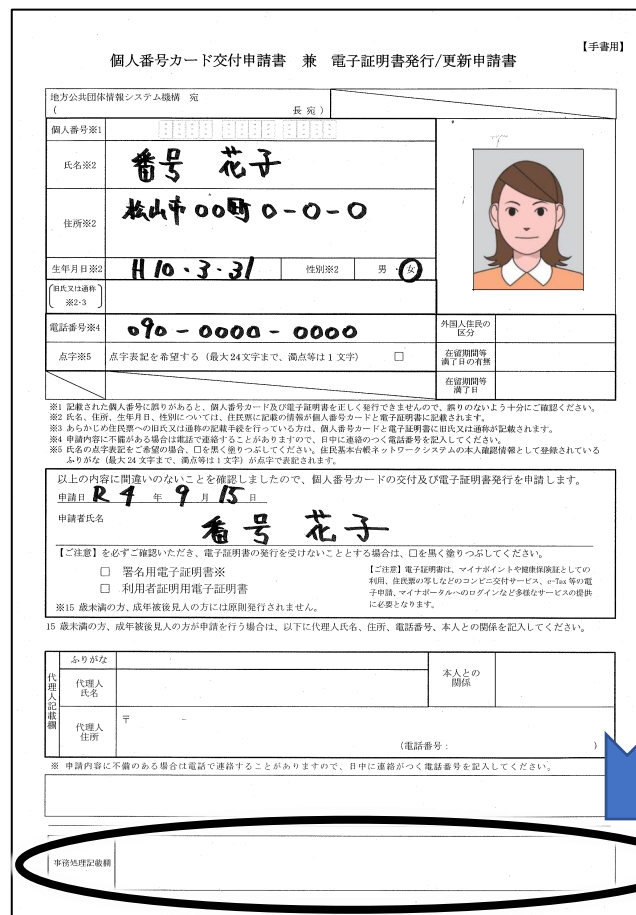 【手書用】
個人番号カード交付申請書 兼 電子証明書発行/更新申請書
地方公共団体情報システム機構 宛
( 長 宛 )
個人番号※1
氏名※2 番号 花子
住所※2 松山市〇〇町〇-〇-〇
生年月日※2 H10・3・31 性別※2 男・女
旧氏又は通称 ※2・3
電話番号※4 090-0000-0000 外国人住民の区分
点字※5 点字表記を希望する(最大24文字まで、濁点等は1文字) □ 在留期間等満了日の有無
在留期間等満了日
※1 記載された個人番号に誤りがあると、個人番号カード及び電子証明書を正しく発行できませんので、誤りのないよう十分にご確認ください。
※2 氏名、住所、生年月日、性別については、住民票に記載の情報が個人番号カードと電子証明書に記載されます。
※3 あらかじめ住民票への旧氏又は通称の記載手続を行っている方は、個人番号カードと電子証明書に旧氏又は通称が記載されます。
※4 申請内容に不備がある場合は電話で連絡することがありますので、日中に連絡のつく電話番号を記入してください。
※5 氏名の点字表記をご希望の場合、□を黒く塗りつぶしてください。住民基本台帳ネットワークシステムの本人確認情報として登録されている
ふりがな(最大24文字まで、濁点等は1文字)が点字で表記されます。
以上の内容に間違いのないことを確認しましたので、個人番号カードの交付及び電子証明書発行を申請します。
申請日 R4 年 9 月 15 日
申請者氏名 番号 花子
【ご注意】を必ずご確認いただき、電子証明書の発行を受けないこととする場合は、□を黒く塗りつぶしてください。
□ 署名用電子証明書※
□ 利用者証明用電子証明書
※15歳未満の方、成年被後見人の方には原則発行されません。
【ご注意】電子証明書は、マイナポイントや健康保険証としての
利用、住民票の写しなどのコンビニ交付サービス、e-Tax等の電
子申請、マイナポータルへのログインなど多様なサービスの提供
に必要となります。
15歳未満の方、成年被後見人の方が申請を行う場合は、以下に代理人氏名、住所、電話番号、本人との関係を記入してください。
代理人記載欄
ふりがな
代理人氏名 本人との関係
代理人住所 〒 -
(電話番号: )
※ 申請内容に不備のある場合は電話で連絡することがありますので、日中に連絡がつく電話番号を記入してください。
事務処理記載欄